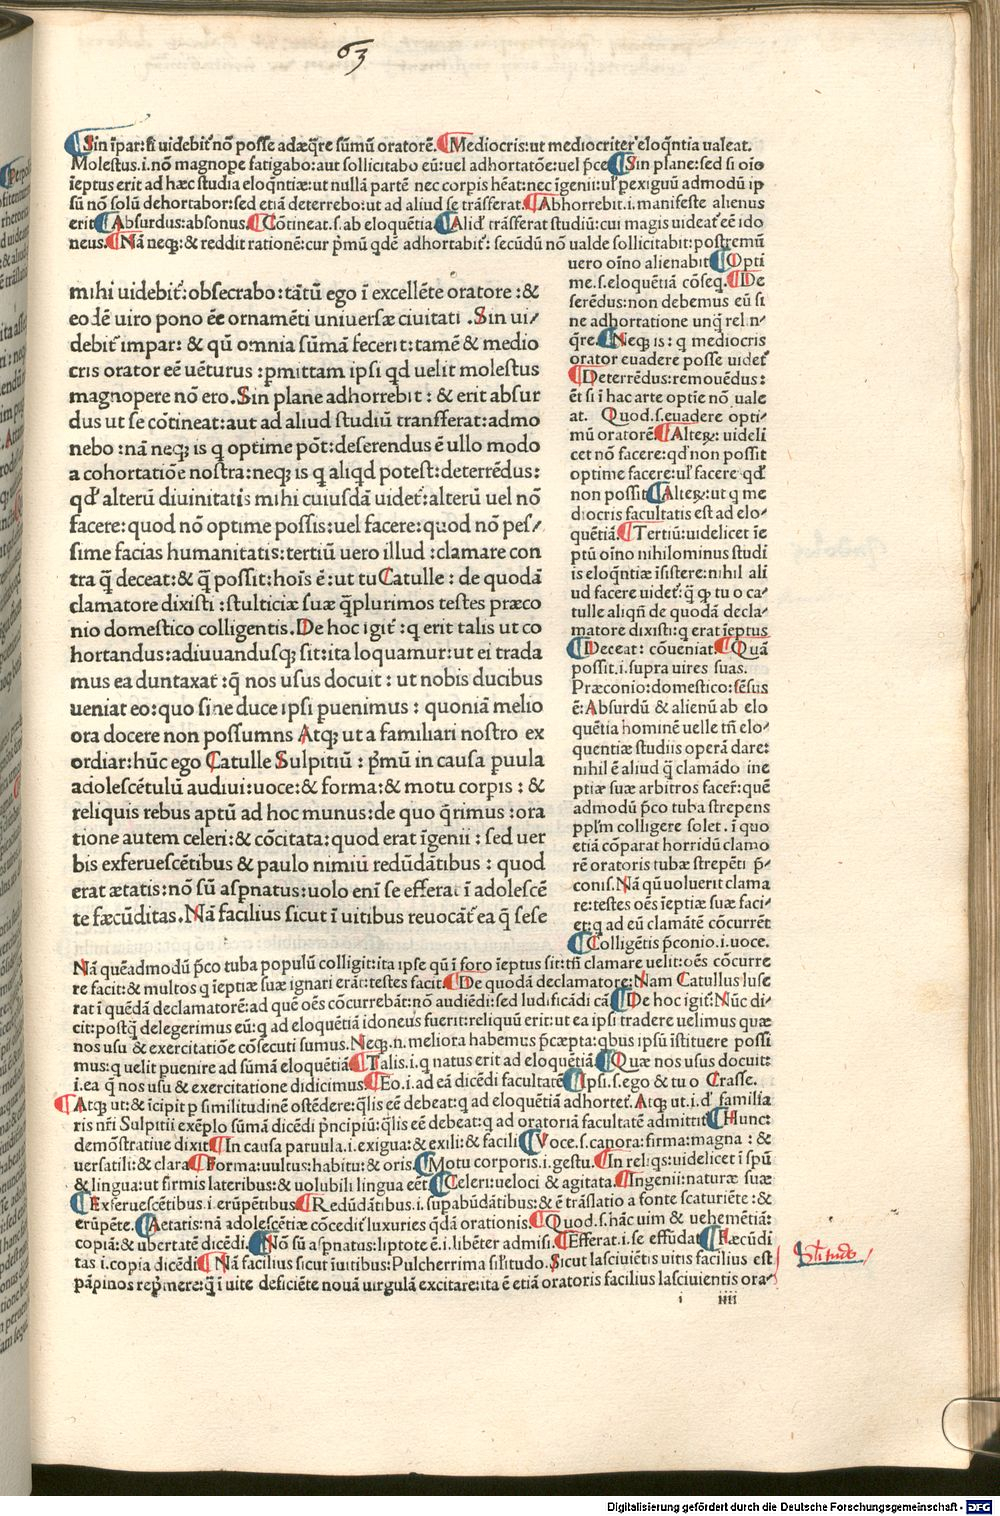 63
Sin īpar: si uidebit᷑ nō posse adæq̄re sūmū oratorē. Mediocris: ut mediocriter eloq̄ntia ualeat.
Molestus .i. nō magnope fatigabo: aut sollicitabo eū: uel adhortatōe: uel p̄ce Sin plane: sed si oīo
īeptus erit ad hæc studia eloq̄ntiæ: ut nullā partē nec corpis hēat: nec īgenii: ul᷑ pexiguū admodū ip
sū nō solū dehortabor: sed etiā deterrebo: ut ad aliud se trāsferat. Abhorrebit .i. manifeste alienus
erit Absurdus: absonus. Cōtineat .s. ab eloquētia Alid᷑ trāsferat studiū: cui magis uideat᷑ eē ido
neus. Nā neq;: & reddit rationē: cur p̄mū qdē adhortabit᷑: secūdū nō ualde sollicitabit: postremū
uero oīno alienabit Opti
me .s. eloquētiā cōseq. De
serēdus: non debemus eū si
ne adhortatione unq̄ relin-
q̄re. Neq; is: q mediocris
orator euadere posse uidet᷑
Deterrēdus: remouēdus:
ēt si i hac arte optie nō uale
at. Quod .s. euadere opti-
mū oratorē. Alteꝝ: uideli
cet nō facere: qd᷑ non possit
optime facere: ul᷑ facere qd᷑
non possit Alteꝝ: ut q me
diocris facultatis est ad elo-
quētiā. Tertiū: uidelicet īe
ptū oīno nihilominus studi
is eloq̄ntiæ īsistere: nihil ali
ud facere uidet᷑: q̄ ꝙ tu o ca-
tulle aliqñ de quodā decla-
matore dixisti: q erat īeptus
Deceat: cōueniat. Quā
possit .i. supra uires suas.
Præconio: domestico: sēsus
ē: Absurdū & alienū ab elo
quētia hominē uelle tñ elo-
quentiæ studiis operā dare:
nihil ē aliud q̄ clamādo ine
ptiæ suæ arbitros facer᷑: quē
admodū p̄co tuba strepens
ppl᷑m colligere solet. ī quo
etiā cōparat horridū clamo
rē oratoris tubæ strepēti p̄-
conis. Nā qū uoluerit clama
re: testes oēs īeptiæ suæ faci-
et: q ad eū clamātē cōcurrēt
Colligētis p̄conio .i. uoce.
mihi uidebit᷑: obsecrabo: tātū ego ī excellēte oratore: &
eodē uiro pono eē ornamēti uniuersæ ciuitati. Sin ui-
debit᷑ impar: & qū omnia sūmā fecerit: tamē & medio
cris orator eē uēturus: pmittam ipsi qd uelit molestus
magnopere nō ero. Sin plane adhorrebit: & erit absur
dus ut se cōtineat: aut ad aliud studiū transferat: admo
nebo: nā neq; is q optime pōt: deserendus ē ullo modo
a cohortatiōe nostra: neq; is q aliqd potest: deterrēdus:
qd᷑ alterū diuinitatis mihi cuiusdā uidet᷑: alterū uel nō
facere: quod nō optime possis: uel facere: quod nō pes-
sime facias humanitatis: tertiū uero illud: clamare con
tra q̄ deceat: & q̄ possit: hoīs ē: ut tu Catulle: de quodā
clamatore dixisti: stulticiæ suæ q̄plurimos testes præco
nio domestico colligentis. De hoc igit᷑: q erit talis ut co
hortandus: adiuuandusq; sit: ita loquamur: ut ei trada
mus ea duntaxat: q̄ nos usus docuit: ut nobis ducibus
ueniat eo: quo sine duce ipsi puenimus: quoniā melio
ora docere non possumns Atq; ut a familiari nostro ex
ordiar: hūc ego Catulle Sulpitiū: p̄mū in causa puula
adolescētulū audiui: uoce: & forma: & motu corpis: &
reliquis rebus aptū ad hoc munus: de quo q̄rimus: ora
tione autem celeri: & cōcitata: quod erat īgenii: sed uer
bis exferuescētibus & paulo nimiū redūdātibus: quod
erat ætatis: nō sū aspnatus: uolo enī se efferat ī adolescē
te fæcūditas. Nā facilius sicut ī uitibus reuocāt᷑ ea q̄ sese
Nā quēadmodū p̄co tuba populū colligit: ita ipse qū ī foro īeptus sit: tñ clamare uelit: oēs cōcurre
re facit: & multos q īeptiæ suæ ignari erāt: testes facit. De quodā declamatore: Nam Catullus luse
rat ī quēdā declamatorē: ad quē oēs cōcurrebāt: nō audiēdi: sed ludificādi cā. De hoc igit᷑: Nūc di-
cit: postq̄ delegerimus eū: q ad eloquētiā idoneus fuerit: reliquū erit: ut ea ipsi tradere uelimus quæ
nos usu & exercitatiōe cōsecuti sumus. Neq. n. meliora habemus p̄cæpta: qbus ipsū īstituere possi
mus: q uelit puenire ad sūmā eloquētiā Talis .i. q natus erit ad eloquētiā. Quæ nos usus docuit:
i. ea q̄ nos usu & exercitatione didicimus. Eo .i. ad eā dicēdi facultatē Ipsi .s. ego & tu o Crasse.
Atq; ut: & īcipit p similitudinē ostēdere: q̄lis eē debeat: q ad eloquētiā adhortet᷑. Atq; ut .i. d᷑ familia
ris nr̄i Sulpitii exēplo sūmā dicēdi p̄ncipiū: q̄lis eē debeat: q ad oratoriā facultatē admittit Hunc:
demōstratiue dixit In causa paruula .i. exigua: & exili: & facili Voce .s. canora: firma: magna: &
uersatili: & clara Forma: uultus: habitu: & oris. Motu corporis .i. gestu. In reliqs: uidelicet ī spū
& lingua: ut firmis lateribus: & uolubili lingua eēt Celeri: ueloci & agitata. Ingenii: naturæ suæ
Exferuescētibus .i. erūpētibus Redūdātibus .i. supabūdātibus: & ē trāslatio a fonte scaturiēte: &
erūpēte. Aetatis: nā adolescētiæ cōcedit᷑ luxuries q̄dā orationis. Quod .s. hāc uim & uehemētiā:
copiā: & ubertatē dicēdi. Nō sū aspnatus: liptote ē .i. libēter admisi. Efferat .i. se effūdat Fæcūdi
tas .i. copia dicēdi Nā facilius sicut īuitibus: Pulcherrima sil᷑itudo. Sicut lasciuiētis uitis facilius est
pāpinos rep̄mere: q̄ ī uite deficiēte nouā uirgulā excitare: ita ē etiā oratoris facilius lasciuientis ora-
Sil᷑itudo
i iiii
Digitalisierung gefördert durch die Deutsche Forschungsgemeinschaft - DFG